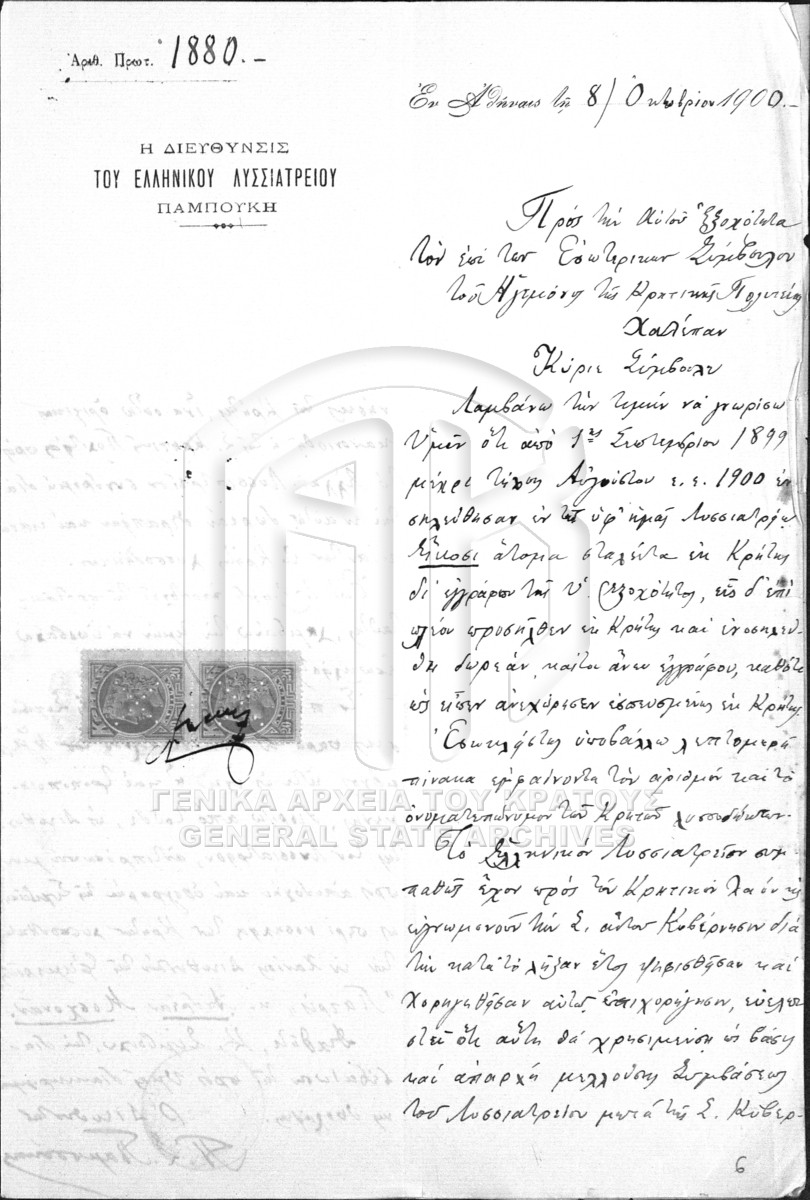 Ἀριθ. Πρωτ. 1880.-
Ἐν Ἀθήναις τῇ 8/Ὀκτωβρίου 1900.-
Η ΔΙΕΥΘΥΝΣΙΣ
ΤΟΥ ΕΛΛΗΝΙΚΟΥ ΛΥΣΣΙΑΤΡΕΙΟΥ
ΠΑΜΠΟΥΚΗ
Πρὸς τὴν Αὐτοῦ Ἐξοχότητα
τὸν ἐπὶ των Ἐσωτερικων Σύμβουλον
τοῦ Ἡγεμόνος τῆς Κρητικῆς Πολιτείας
Χαλέπαν
Κύριε Σύμβουλε
Λαμβάνω τὴν τιμὴν νὰ γνωρίσω
Ὑμῖν ὅτι ἀπὸ 1ης Σεπτεμβρίου 1899
μέχρι τέλους Αὐγούστου ε.ε. 1900 ἐν
οσηλεύθησαν ἐν τῷ ὑφ' ἡμᾶς Λυσσιατρείῳ
εἴκοσι ἄτομα σταλέντα ἐκ Κρήτης
δι' ἐγγράφων τῆς Ὑ. Ἐξοχότητος, εἷς δ' ἐπὶ
πλέον προσῆλθεν ἐκ Κρήτης καὶ ἐνοσηλεύ-
θη δωρεὰν, καίτοι ἄνευ ἐγγράφου, καθότι
ὡς εἶπεν ἀνεχώρησεν ἐσπευσμένως ἐκ Κρήτης
Ἐσωκλείστως ὑποβάλλω λεπτομερῆ
πίνακα ἐμφαίνοντα τὸν ἀριθμὸν καὶ τὸ
ὀνοματεπώνυμον τῶν Κρητῶν λυσσοδήκτων.
Τὸ Ἑλληνικὸν Λυσσιατρεῖον συμ-
παθῶς ἔχον πρὸς τὸν Κρητικὸν λαὸν
εὐγνωμονοῦν τὴν Σ. αὐτοῦ Κυβέρνησιν διὰ
τὴν κατὰ τὸ λῆξαν ἔτος ψηφισθῆσαν καὶ
χορηγηθῆσαν αὐτῷ ἐπιχορήγησιν, εὐελπι-
στεῖ ὅτι αὕτη θὰ χρησιμεύσῃ ὡς βάσις
καὶ ἀπαρχὴ μελλούσης Συμβάσεως
τοῦ Λυσσιατρείου μετὰ τῆς Σ. Κυβερ-
6
ΓΕΝΙΚΑ ΑΡΧΕΙΑ ΤΟΥ ΚΡΑΤΟΥΣ
GENERAL STATE ARCHIVES